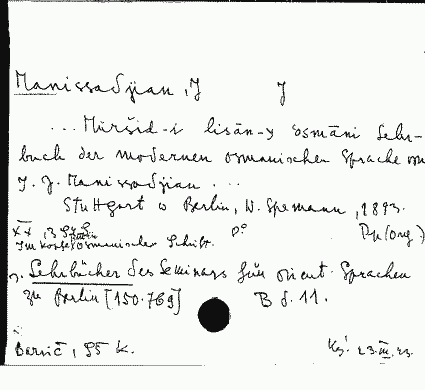 Manissadjian, J J
... Müršid-i lisān-y osmāni Lehr-
buch der modernen osmanischen Sprache von
J. J. Manissadjian ...
Stuttgart & Berlin, W. Spemann, 1893.
8°
Im Kopfe osmanischer Schrift.
Lehrbücher des Seminars für orient. Sprachen
zu Berlin [150.769] B d. 11.
Barsič, 95 K. 23.III.23.